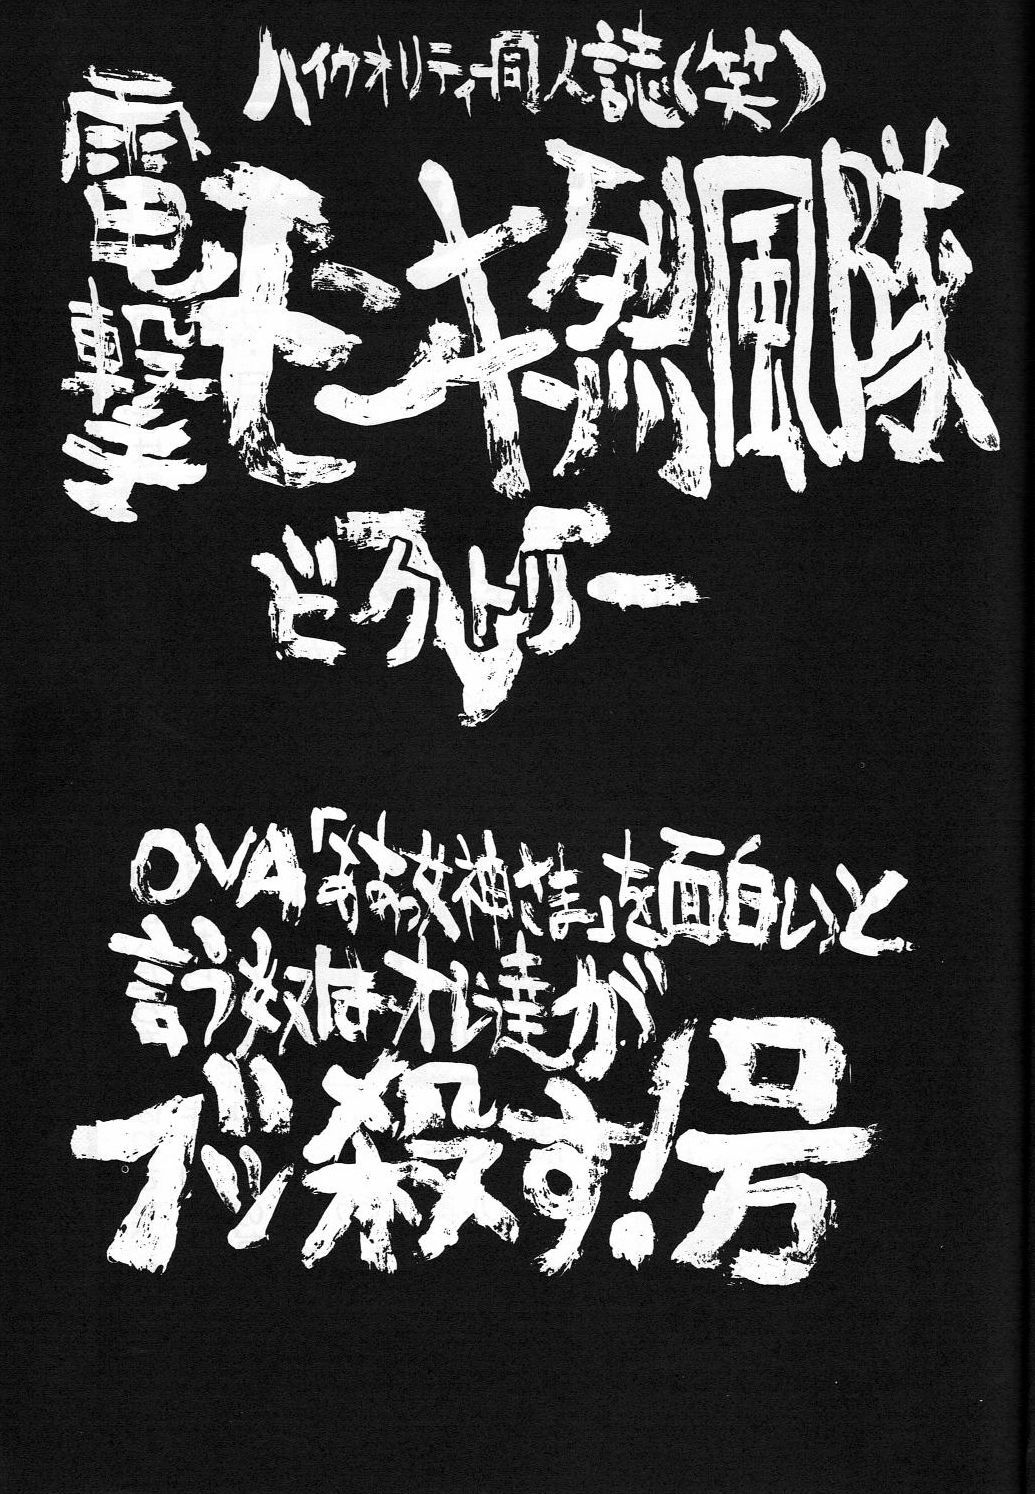 ハイクオリティー同人誌(笑)
電撃
モンキ烈風隊
ビクトリー
V
OVA「ああっ女神さま」を面白いと
言う奴はオレ達が
ブッ殺す!号